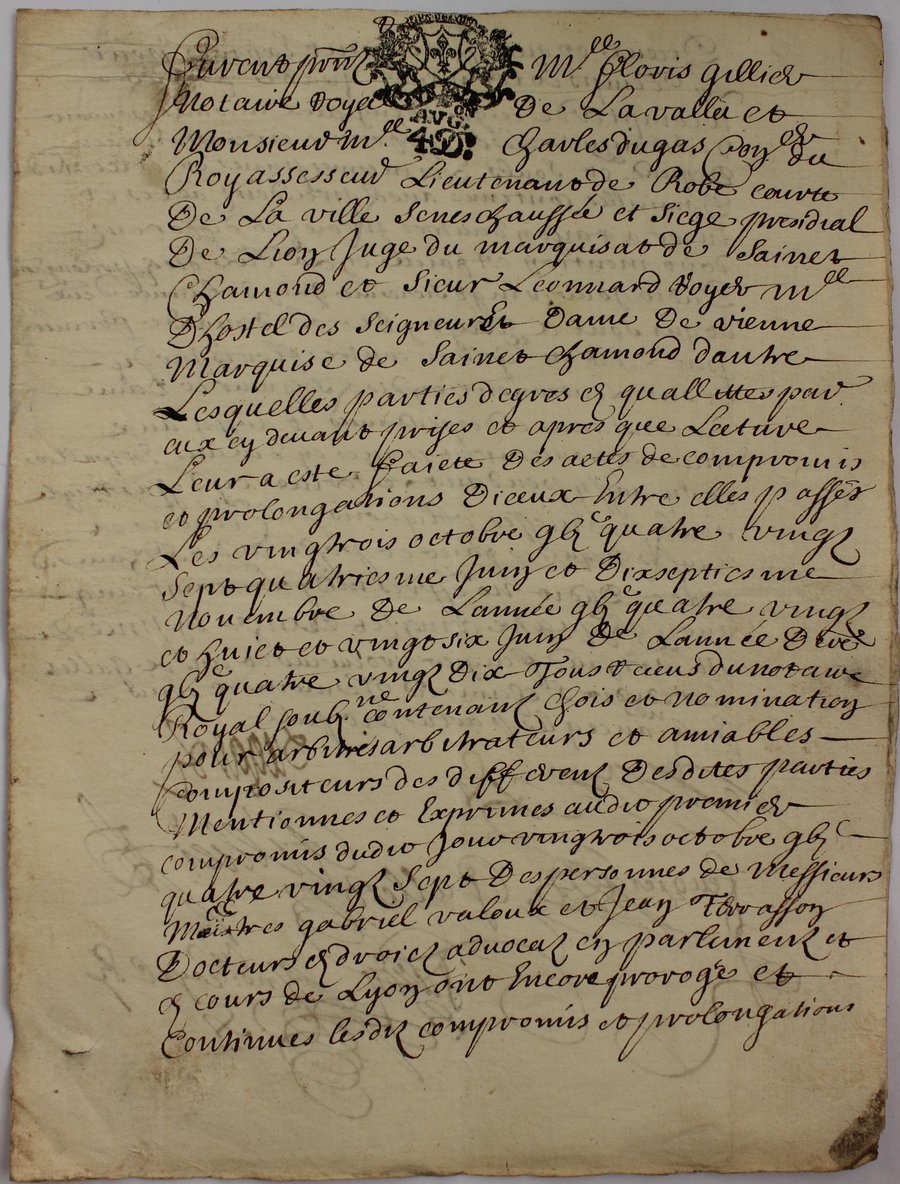 Furent pntz Mre Clovis Gillier
Notaire Royal De Lavalla et
Monsieur Mre Charles dugas Coner du
Roy assesseur Lieutenant de Robe courte
De La ville Seneschaussée et Siege presidial
De Lion Juge du marquisat de Sainct
Chamond et Sieur Leonnard Royer Mre
Dhostel des Seigneur Et Dame De vienne
Marquise de Sainct chamond dautre
Lesquelles parties degres & quallittes par
eux cy devant prises et apres que Lecture
Leur a este Faicte Des actes de compromis
et prolongations Diceux Entre elles passés
Les vingtrois octobre gbic quatre vingz
Sept quatriesme Juin et Dixseptiesme
Novembre de Lannée gbic quatre vingz
et huict et vingt six Juin De Lannée Dre
gbic quatre vingz Dix Tous Receus du notaire
Royal soubzne contenanz Chois et nomination
pour arbitres arbitrateurs et amiables
compositeurs des differenz Desdites parties
Mentionnes et Exprimes audit premier
compromis dudit Jour vingtrois octobre gbic
quatre vingz Sept Des personnes de Messieurs
Maistres gabriel valoux et Jean Terrasson
Docteurs & droicz advocaz en parlemenz et
& cours de Lyon ont Encore prorogé et
Continues lesdiz compromis et prolongations